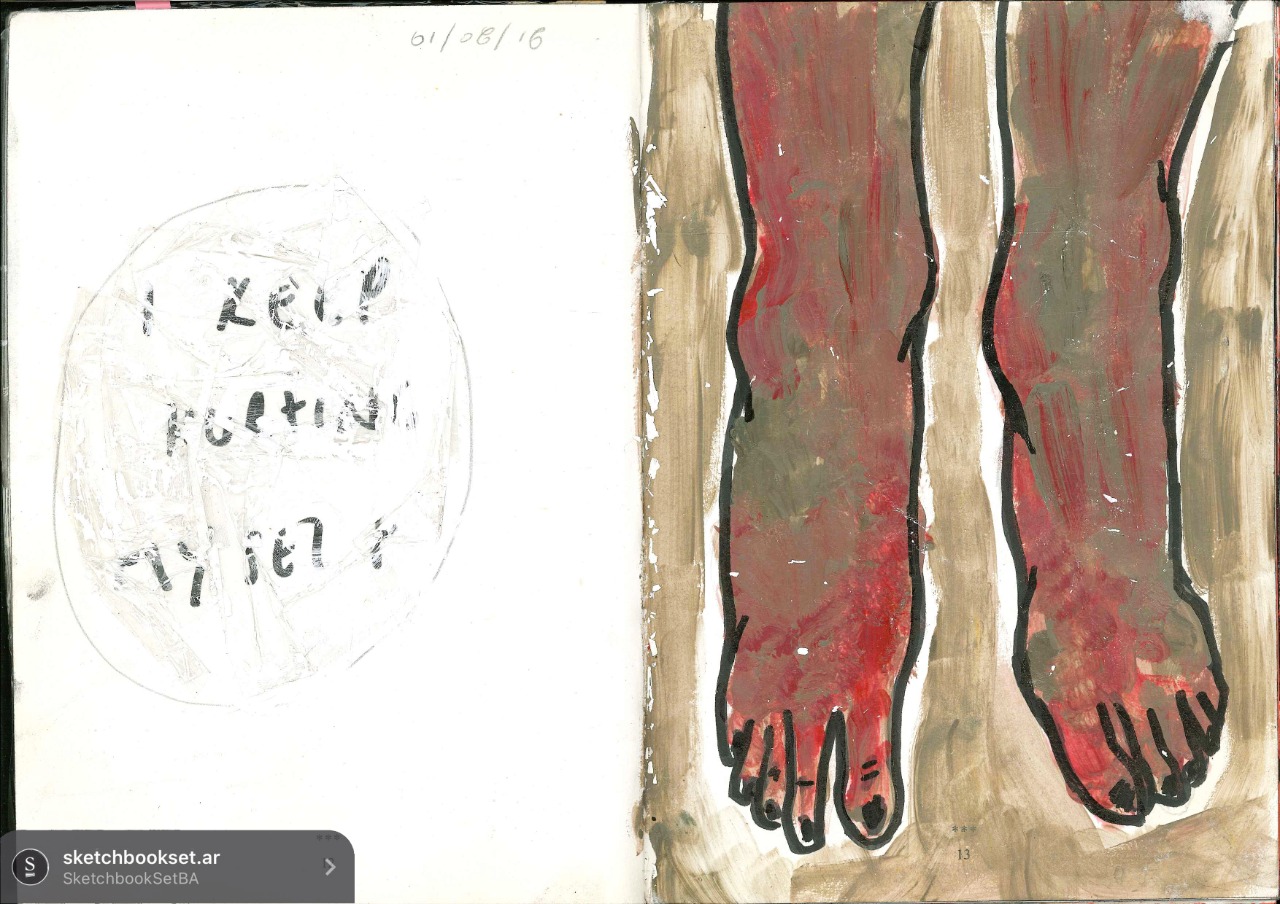 01/08/16
I KEEP
HURTING
MYSELF
***
***
13
sketchbookset.ar
SketchbookSetBA